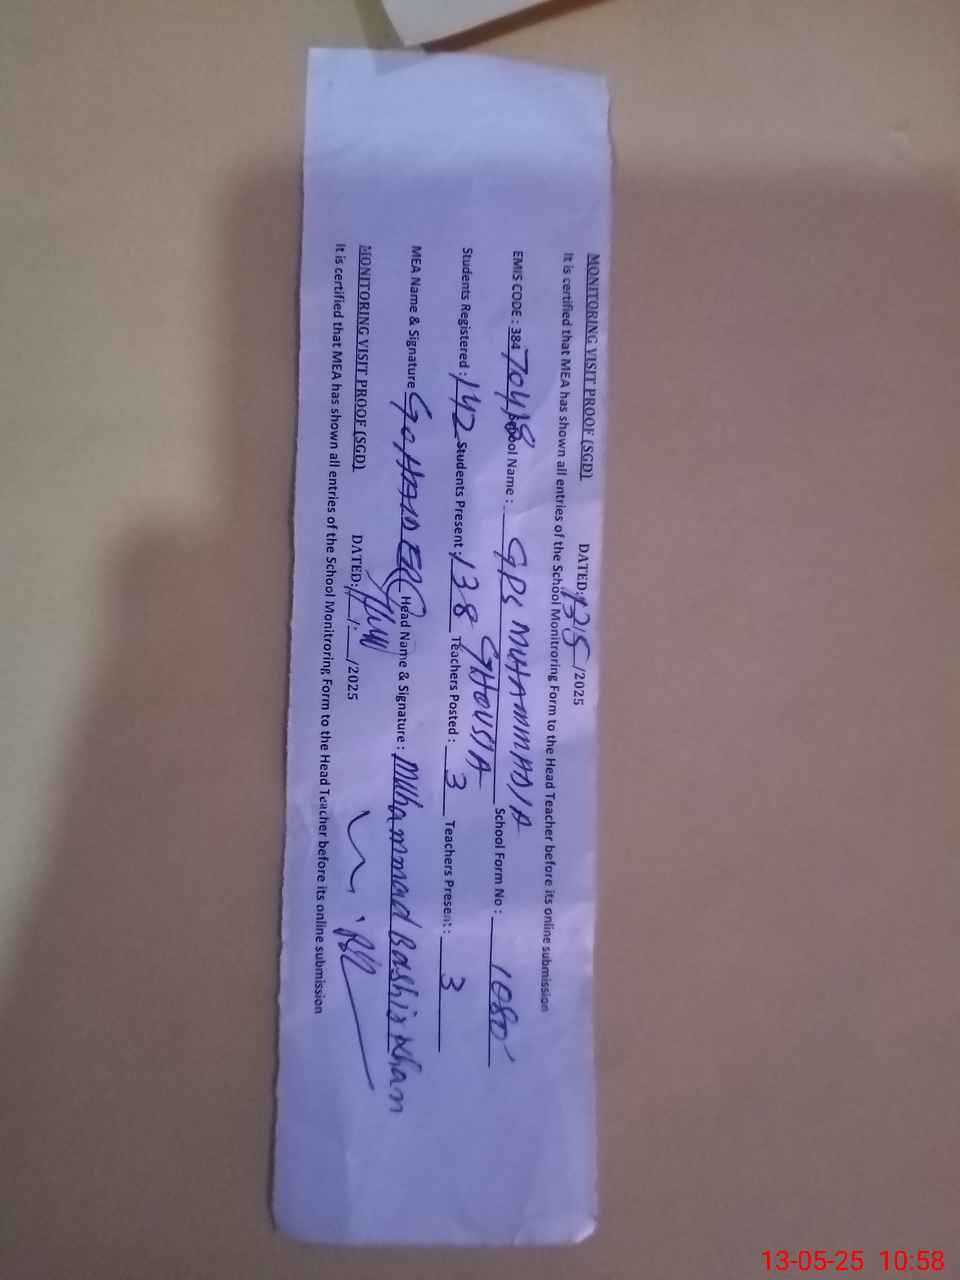 MONITORING VISIT PROOF (SGD) DATED: 13 5 /2025
It is certified that MEA has shown all entries of the School Monitroring Form to the Head Teacher before its online submission
EMIS CODE : 384 70418 School Name : GPS MUHAMMADIA School Form No : 1080
GHOUSIA
Students Registered : 142 Students Present : 138 Teachers Posted : 3 Teachers Present : 3
MEA Name & Signature G. HAIDER Head Name & Signature : Muhammad Bashir Khan
MONITORING VISIT PROOF (SGD) DATED: / /2025
It is certified that MEA has shown all entries of the School Monitroring Form to the Head Teacher before its online submission
13-05-25 10:58